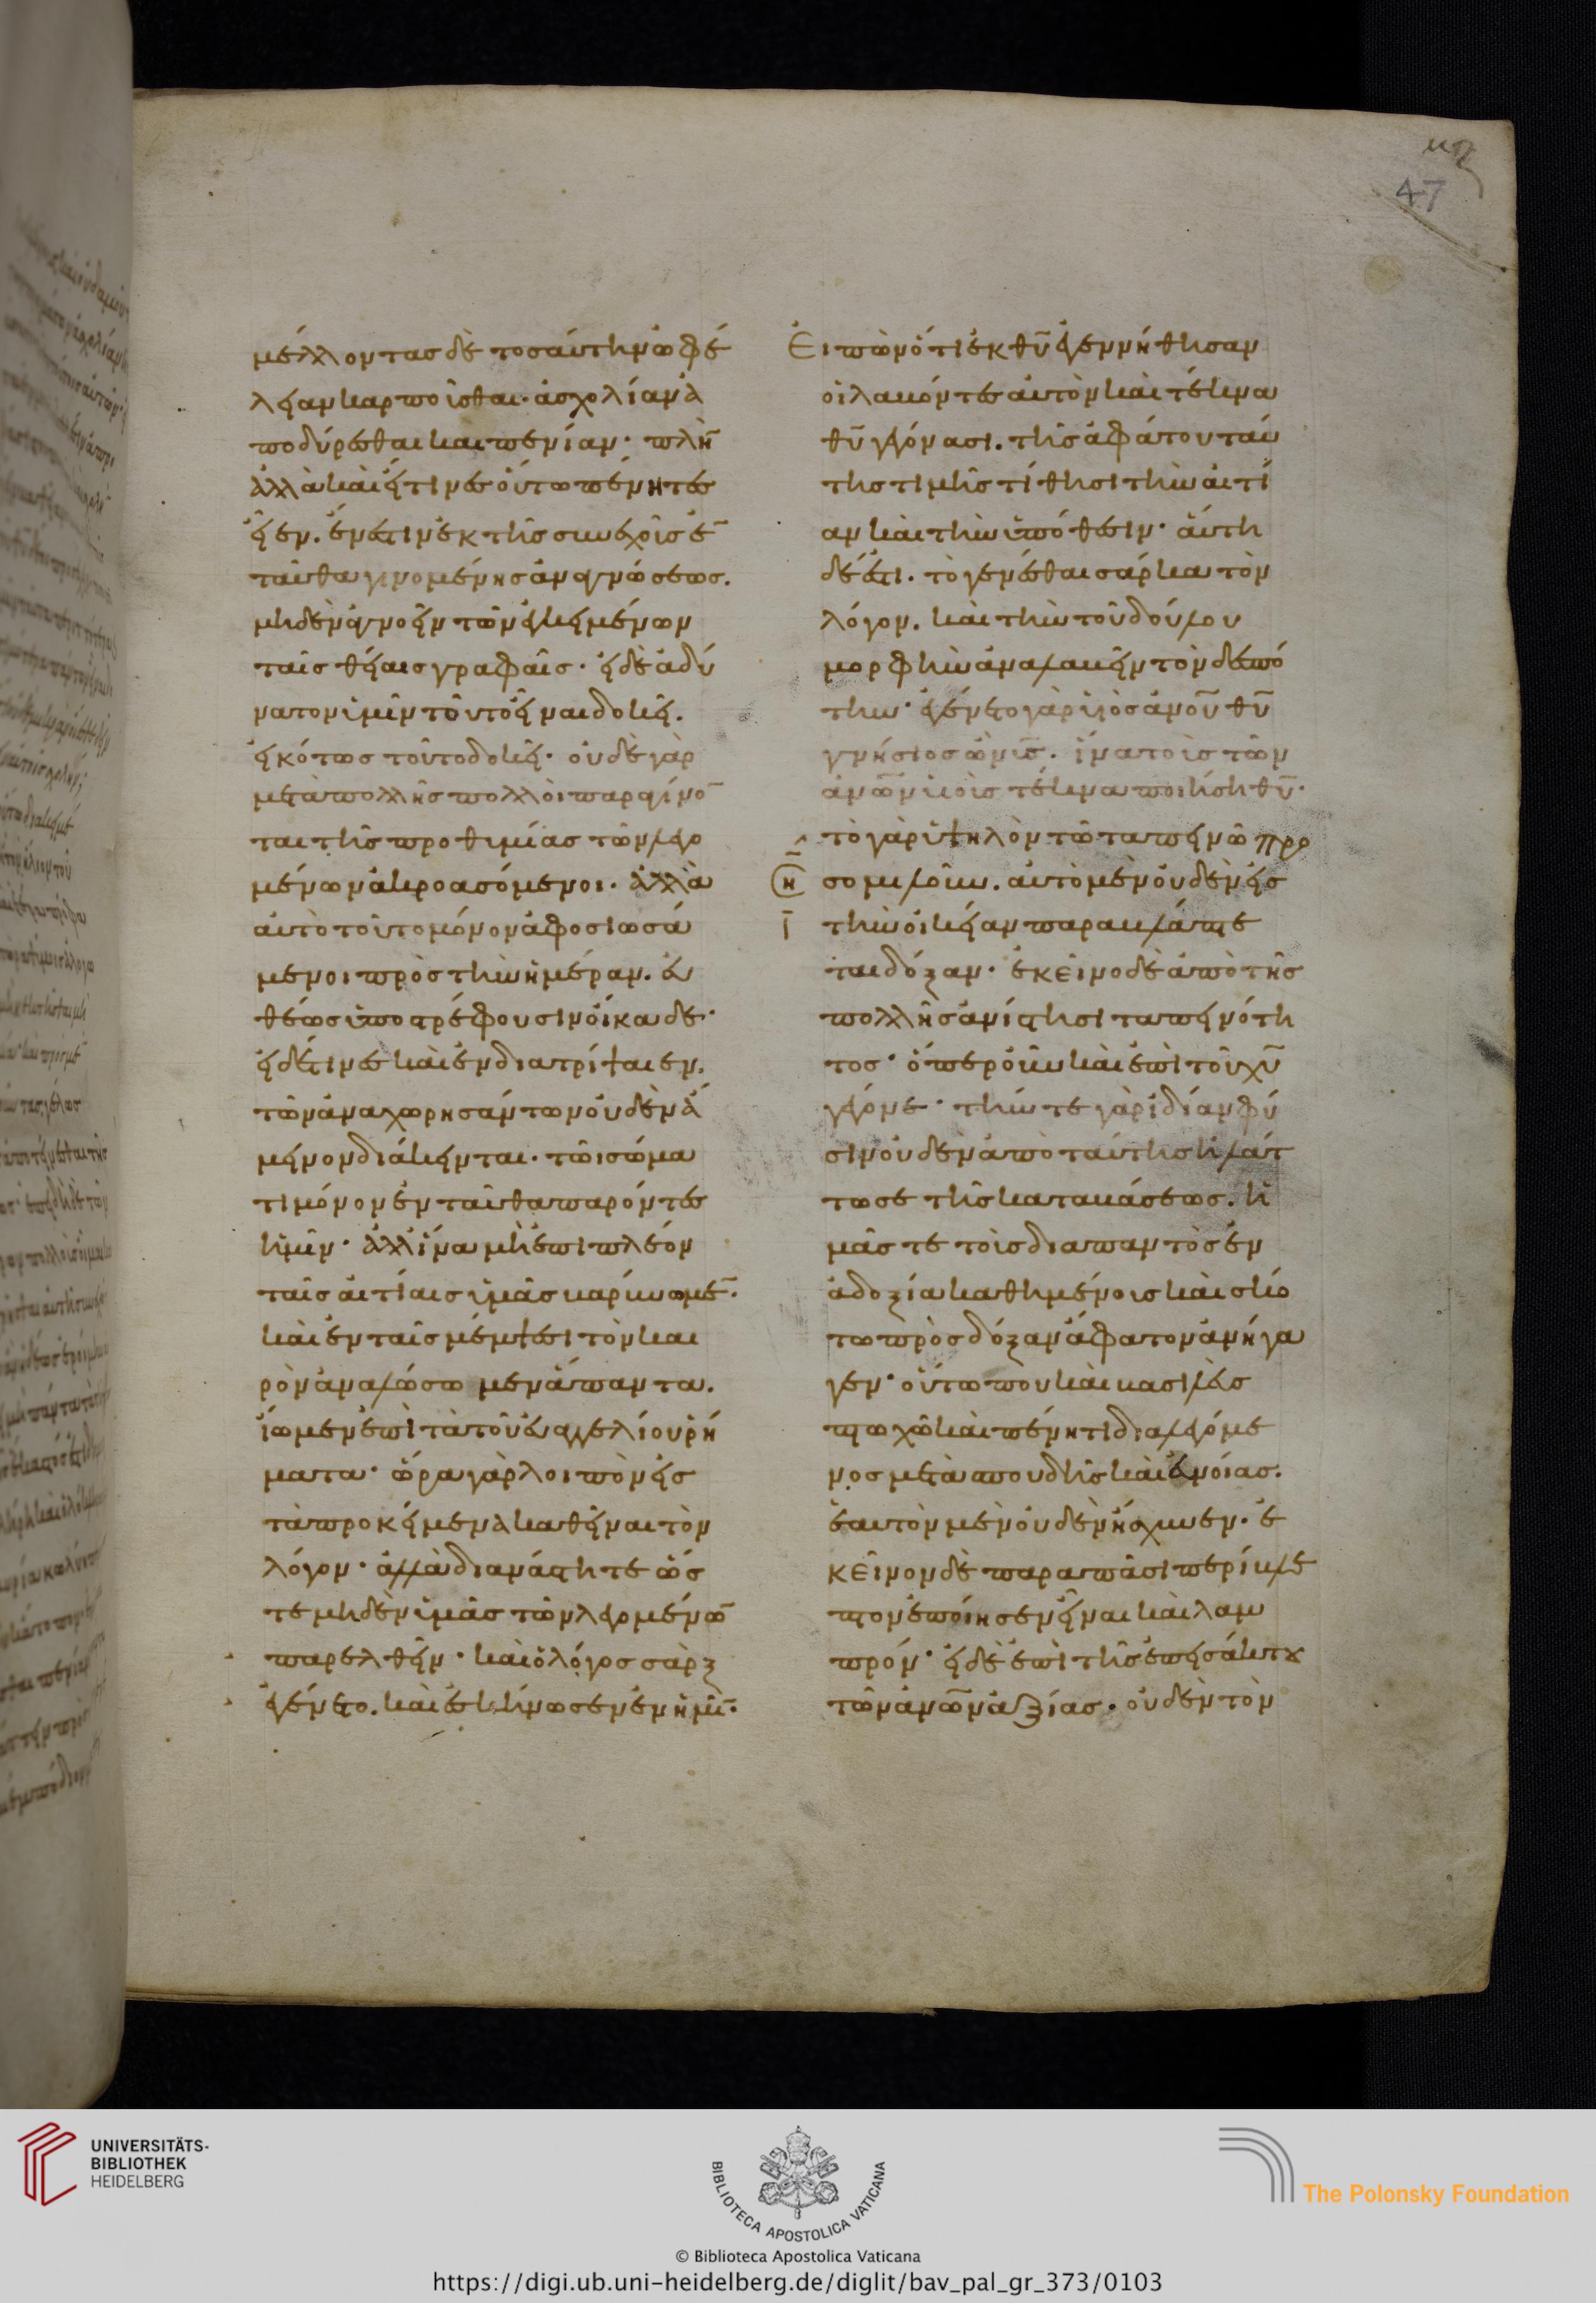 μζ
47
μέλλοντας δὲ τοσαύτην ὠφέ
λειαν καρποῦσθαι· ἀσχολίαν ἀ
ποδύρεσθαι καὶ πενίαν· πλὴ̅
ἀλλὰ καὶ εἴ τινες οὕτω πένητες
εἶεν. ἔνεστιν ἐκ τῆς συνεχοῦς ἐ̅
ταῦθα γινομένης ἀναγνώσεως.
μηδὲν ἀγνοεῖν τῶν ἐγκειμένων
ταῖς θείαις γραφαῖς· εἰ δὲ ἀδύ
νατον ὑμῖν τοῦτο εἶναι δοκεῖ.
εἰκότως τοῦτο δοκεῖ· οὐδὲ γὰρ
μετὰ πολλῆς πολλοὶ παραγίνο̅
ται τῆς προθυμίας τῶν λεγο
μένων ἀκροασόμενοι· ἀλλὰ
αὐτὸ τοῦτο μόνον ἀφοσιωσά
μενοι πρὸς τὴν ἡμέραν. εὐ
θέως ὑποστρέφουσιν οἴκαδε·
εἰ δέ τινες καὶ ἐνδιατρίψαιεν.
τῶν ἀναχωρησάντων οὐδὲν ἄ
μεινον διάκεινται· τῶι σώμα
τι μόνον ἐνταῦθα παρόντες
ἡμῖν· ἀλλ ἵνα μὴ ἐπιπλέον
ταῖς αἰτίαις ὑμᾶς βαρύνωμε̅·
καὶ ἐν ταῖς μέμψεσι τὸν και
ρὸν ἀναλώσωμεν ἅπαντα.
ἴωμεν ἐπὶ τὰ τοῦ εὐαγγελίου ῥή
ματα· ὥρα γὰρ λοιπὸν εἰς
τὰ προκείμενα καθεῖναι τὸν
λόγον· ἀλλὰ διανάστητε ὥς
τε μηδὲν ὑμᾶς τῶν λεγομένω̅
παρελθεῖν· καὶ ὁ λόγος σὰρξ
ἐγένετο. καὶ ἐσκήνωσεν ἐν ἡμῖ̅·
Εἰπὼν ὅτι ἐκ θυ̅ ἐγεννήθησαν
οἱ λαβόντες αὐτὸν καὶ τέκνα
θυ̅ γεγόνασι. τῆς ἀφάτου ταύ
της τιμῆς τίθησι τὴν αἰτί
αν καὶ τὴν ὑπόθεσιν· αὕτη
δέ ἐστι. τὸ γενέσθαι σάρκα τὸν
λόγον. καὶ τὴν τοῦ δούλου
μορφὴν ἀναλαβεῖν τὸν δεσπό
την· ἐγένετο γὰρ υἱὸς ἀνου̅ θυ̅
γνήσιος ὢν υσ̅. ἵνα τοὺς τῶν
ἀνω̅ν υἱοὺς τέκνα ποιήσῃ θυ̅·
τὸ γὰρ ὑψηλὸν τῶ ταπεινῶ προ
η
σομιλοῦν. αὐτὸ μὲν οὐδὲν εἰς
τὴν οἰκείαν παραβλάπτε
ται δόξαν· ἐκεῖνο δὲ ἀπὸ τῆς
πολλῆς ἀνίστησι ταπεινότη
τος· ὅπερ οὖν καὶ ἐπὶ τοῦ χυ̅
γέγονε· τήν τε γὰρ ἰδίαν φύ
σιν οὐδὲν ἀπὸ ταύτης ἠλάτ
τωσε τῆς καταβάσεως. ἡ
μᾶς τε τοὺς διαπαντὸς ἐν
ἀδοξία καθημένους καὶ σκό
τω πρὸς δόξαν ἄφατον ἀνήγα
γεν· οὕτω που καὶ βασιλεὺς
πτωχῶ καὶ πένητι διαλεγόμε
νος μετὰ σπουδῆς καὶ εὐνοίας.
ἑαυτὸν μὲν οὐδὲν ἤσχυνεν· ἐ
κεῖνον δὲ παρὰ πᾶσι περίβλε
πτον ἐποίησεν εἶναι καὶ λαμ
πρόν· εἰ δὲ ἐπὶ τῆς ἐπεισάκτου
τῶν ἀνω̅ν ἀξίας· οὐδὲν τὸν
UNIVERSITÄTS-
BIBLIOTHEK
HEIDELBERG
BIBLIOTECA APOSTOLICA VATICANA
The Polonsky Foundation
© Biblioteca Apostolica Vaticana
https://digi.ub.uni-heidelberg.de/diglit/bav_pal_gr_373/0103